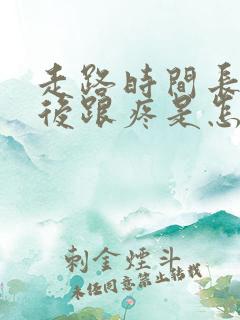 走路時間長
後跟疼是怎
刺金煙斗
未經同意禁止轉載